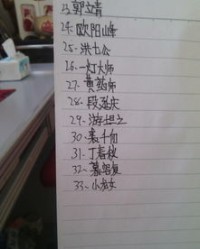 23. 郭立青
24. 欧阳山峰
25. 洪七公
26. 一灯大师
27. 黄药师
28. 段延庆
29. 游坦之
30. 裘千仞
31. 丁春秋
32. 慕容复
33. 小龙女